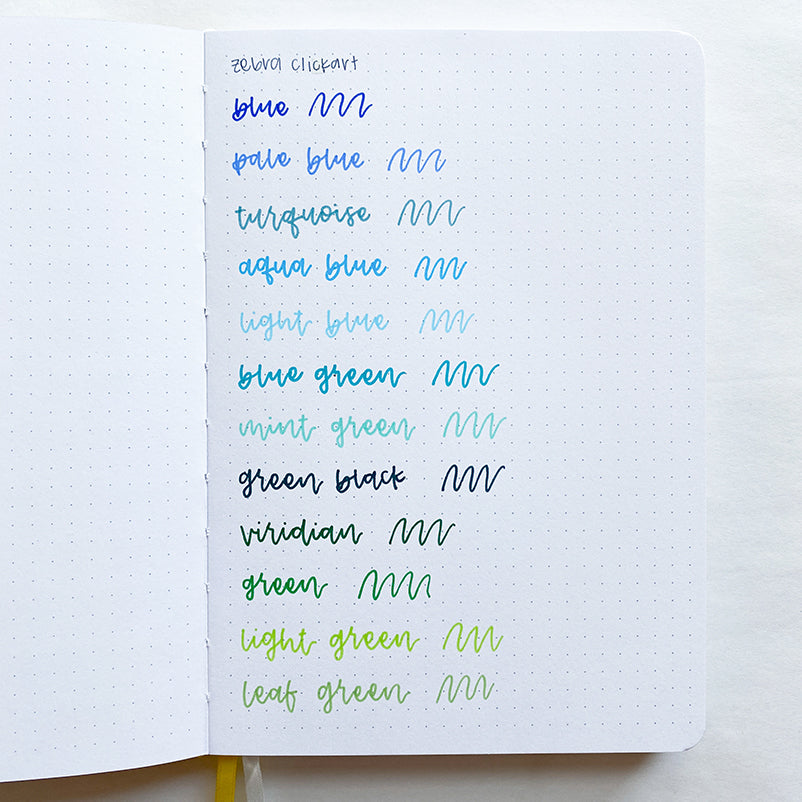 zebra clickart
blue
pale blue
turquoise
aqua blue
light blue
blue green
mint green
green black
viridian
green
light green
leaf green